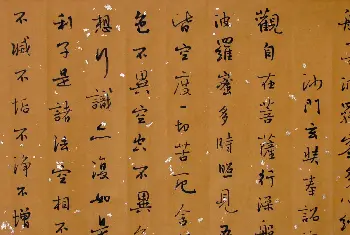 般若波羅蜜多心經
沙門玄奘奉詔
觀自在菩薩行深般
波羅蜜多時照見五
皆空度一切苦厄舍
色不異空空不異色
想行識亦復如是
利子是諸法空相不
不減不垢不淨不增